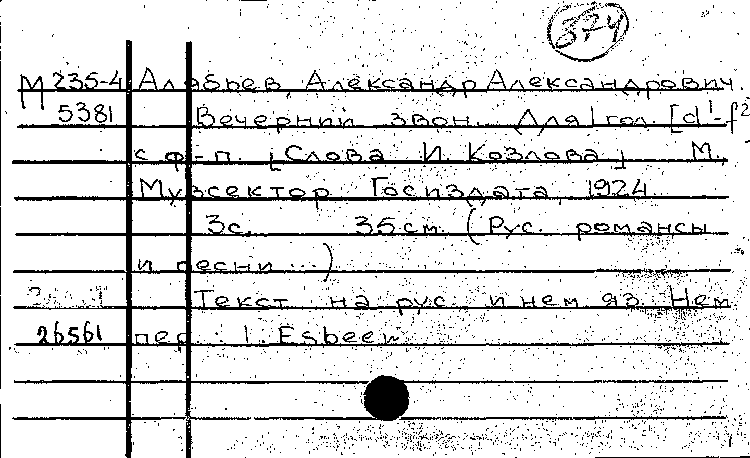 374
М 235-4 Алябьев, Александр Александрович.
5381 Вечерний звон. Для 1 гол. [d¹-f²]
с ф-п. [Слова И. Козлова] М.,
Музсектор Госиздата, 1924.
3с. 35см. (Рус. романсы
и песни...)
Текст на рус. и нем. яз. Нем.
26561 пер.: I. Esbeer